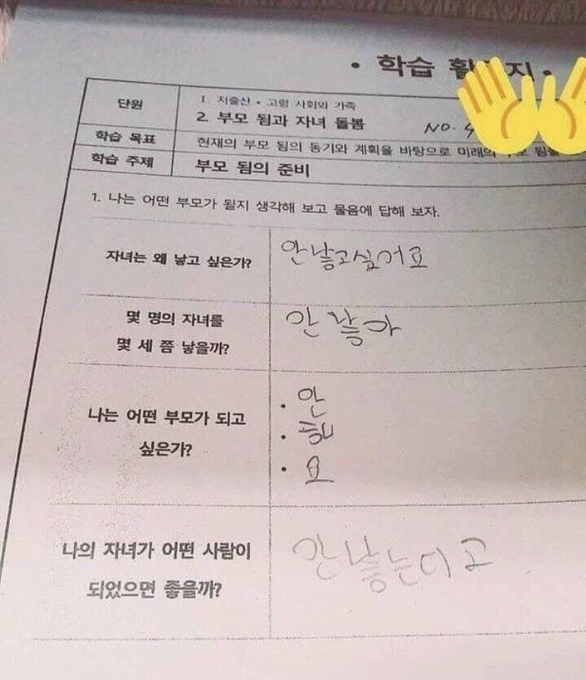 • 학습 활 지 •
단원
1. 저출산 • 고령 사회와 가족
2. 부모 됨과 자녀 돌봄
NO.
학습 목표
현재의 부모 됨의 동기와 계획을 바탕으로 미래의
학습 주제
부모 됨의 준비
1. 나는 어떤 부모가 될지 생각해 보고 물음에 답해 보자.
자녀는 왜 낳고 싶은가?
안낳고싶거요
몇 명의 자녀를
몇 세 쯤 낳을까?
안 낳아
나는 어떤 부모가 되고
싶은가?
• 안
• 해
• 요
나의 자녀가 어떤 사람이
되었으면 좋을까?
안낳는다고